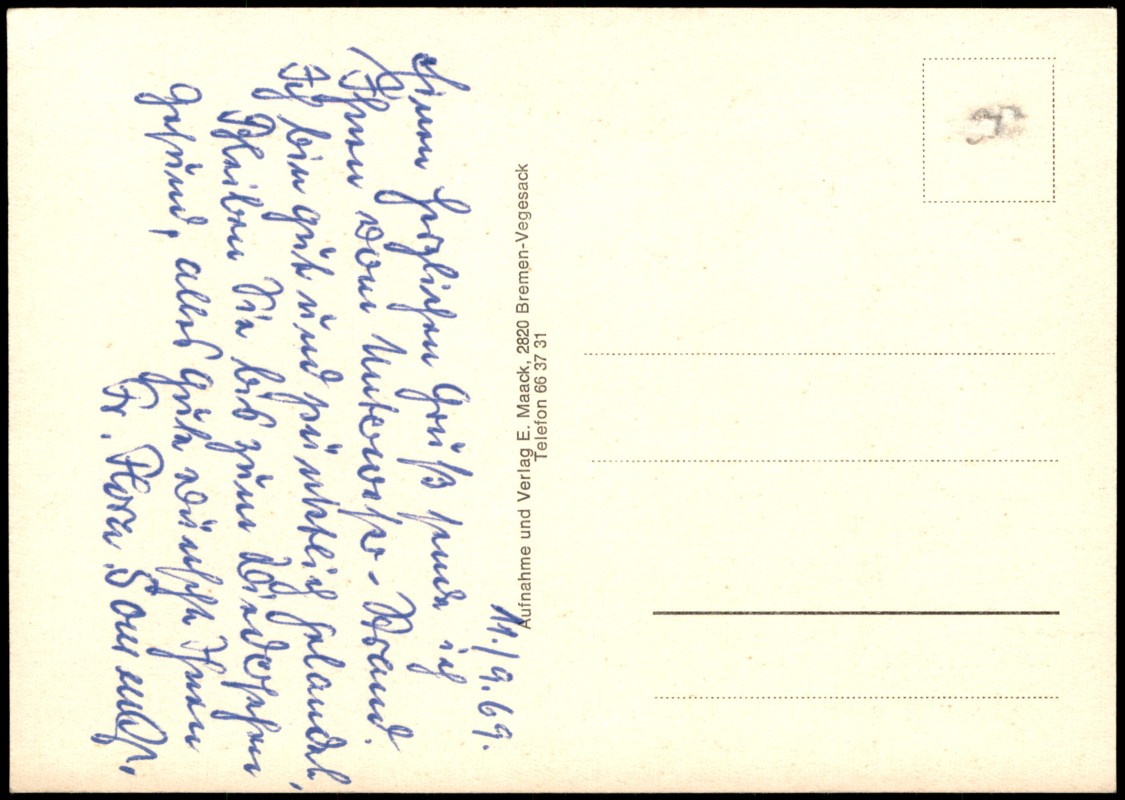 11./9.69.
Einen herzlichen Gruß sende ich
Ihnen vom Unterweser-Strand.
Ich bin gut und pünktlich gelandet,
Bleiben Sie bis zum Wiedersehen
gesund, alles gute wünscht Ihnen
Fr. Flora
Aufnahme und Verlag E. Maack, 2820 Bremen-Vegesack
Telefon 66 37 31